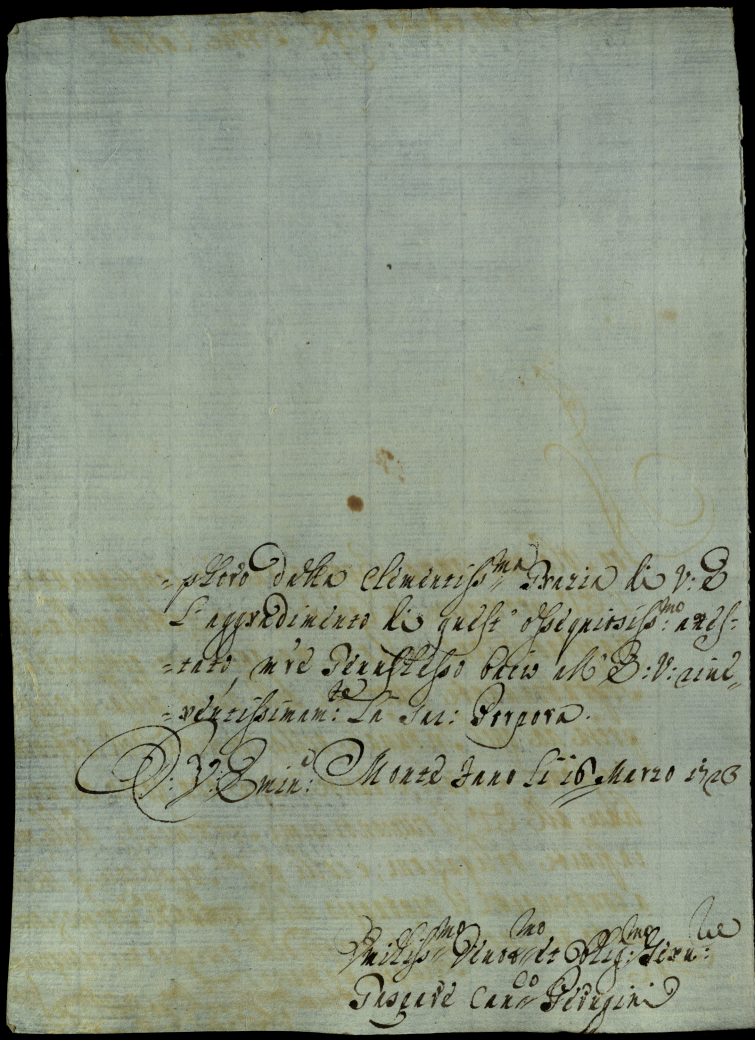 =ploro dalla Clementiss:ma Grazia di V: E
L'aggradimento di quest' ossequiosiss:mo attes-
=tato, m're Genuflesso bacio all' E: V: rive
=rentissimam:te La Sac: Porpora.
D: V: Emin: Monte Fano Li 16 Marzo 1728
Umiliss:mo Devo:mo et Oblig:mo Serv:re
Gaspare Can:co Perugini